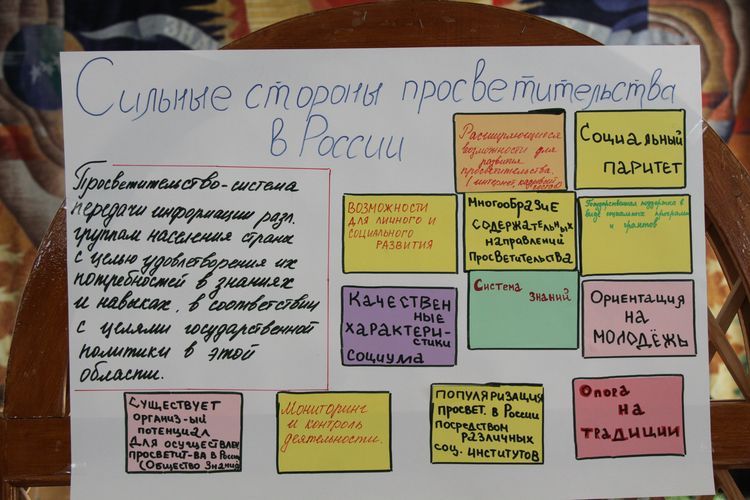 Сильные стороны просветительства
в России
Просветительство-система
передачи информации разл.
группам населения страны
с целью удовлетворения их
потребностей в знаниях
и навыках, в соответствии
с целями государственной
политики в этой
области.
Расширяющиеся
возможности для
развития
просветительства.
(интернет, кадровый
Социальный
паритет
Возможности
для личного и
социального
развития
Многообразие
содержательных
направлений
просветительства
Государственная поддержка в
виде социальных программ
и грантов
Качествен
ные
характери-
стики
социума
Система
знаний
Ориентация
на
молодёжь
Существует
организ-ый
потенциал
для осуществлен
просветит-ва в России
(Общество Знания
Мониторинг
и контроль
деятельности.
Популяризация
просвет. в России
посредством
различных
соц. институтов
Опора
на
традиции